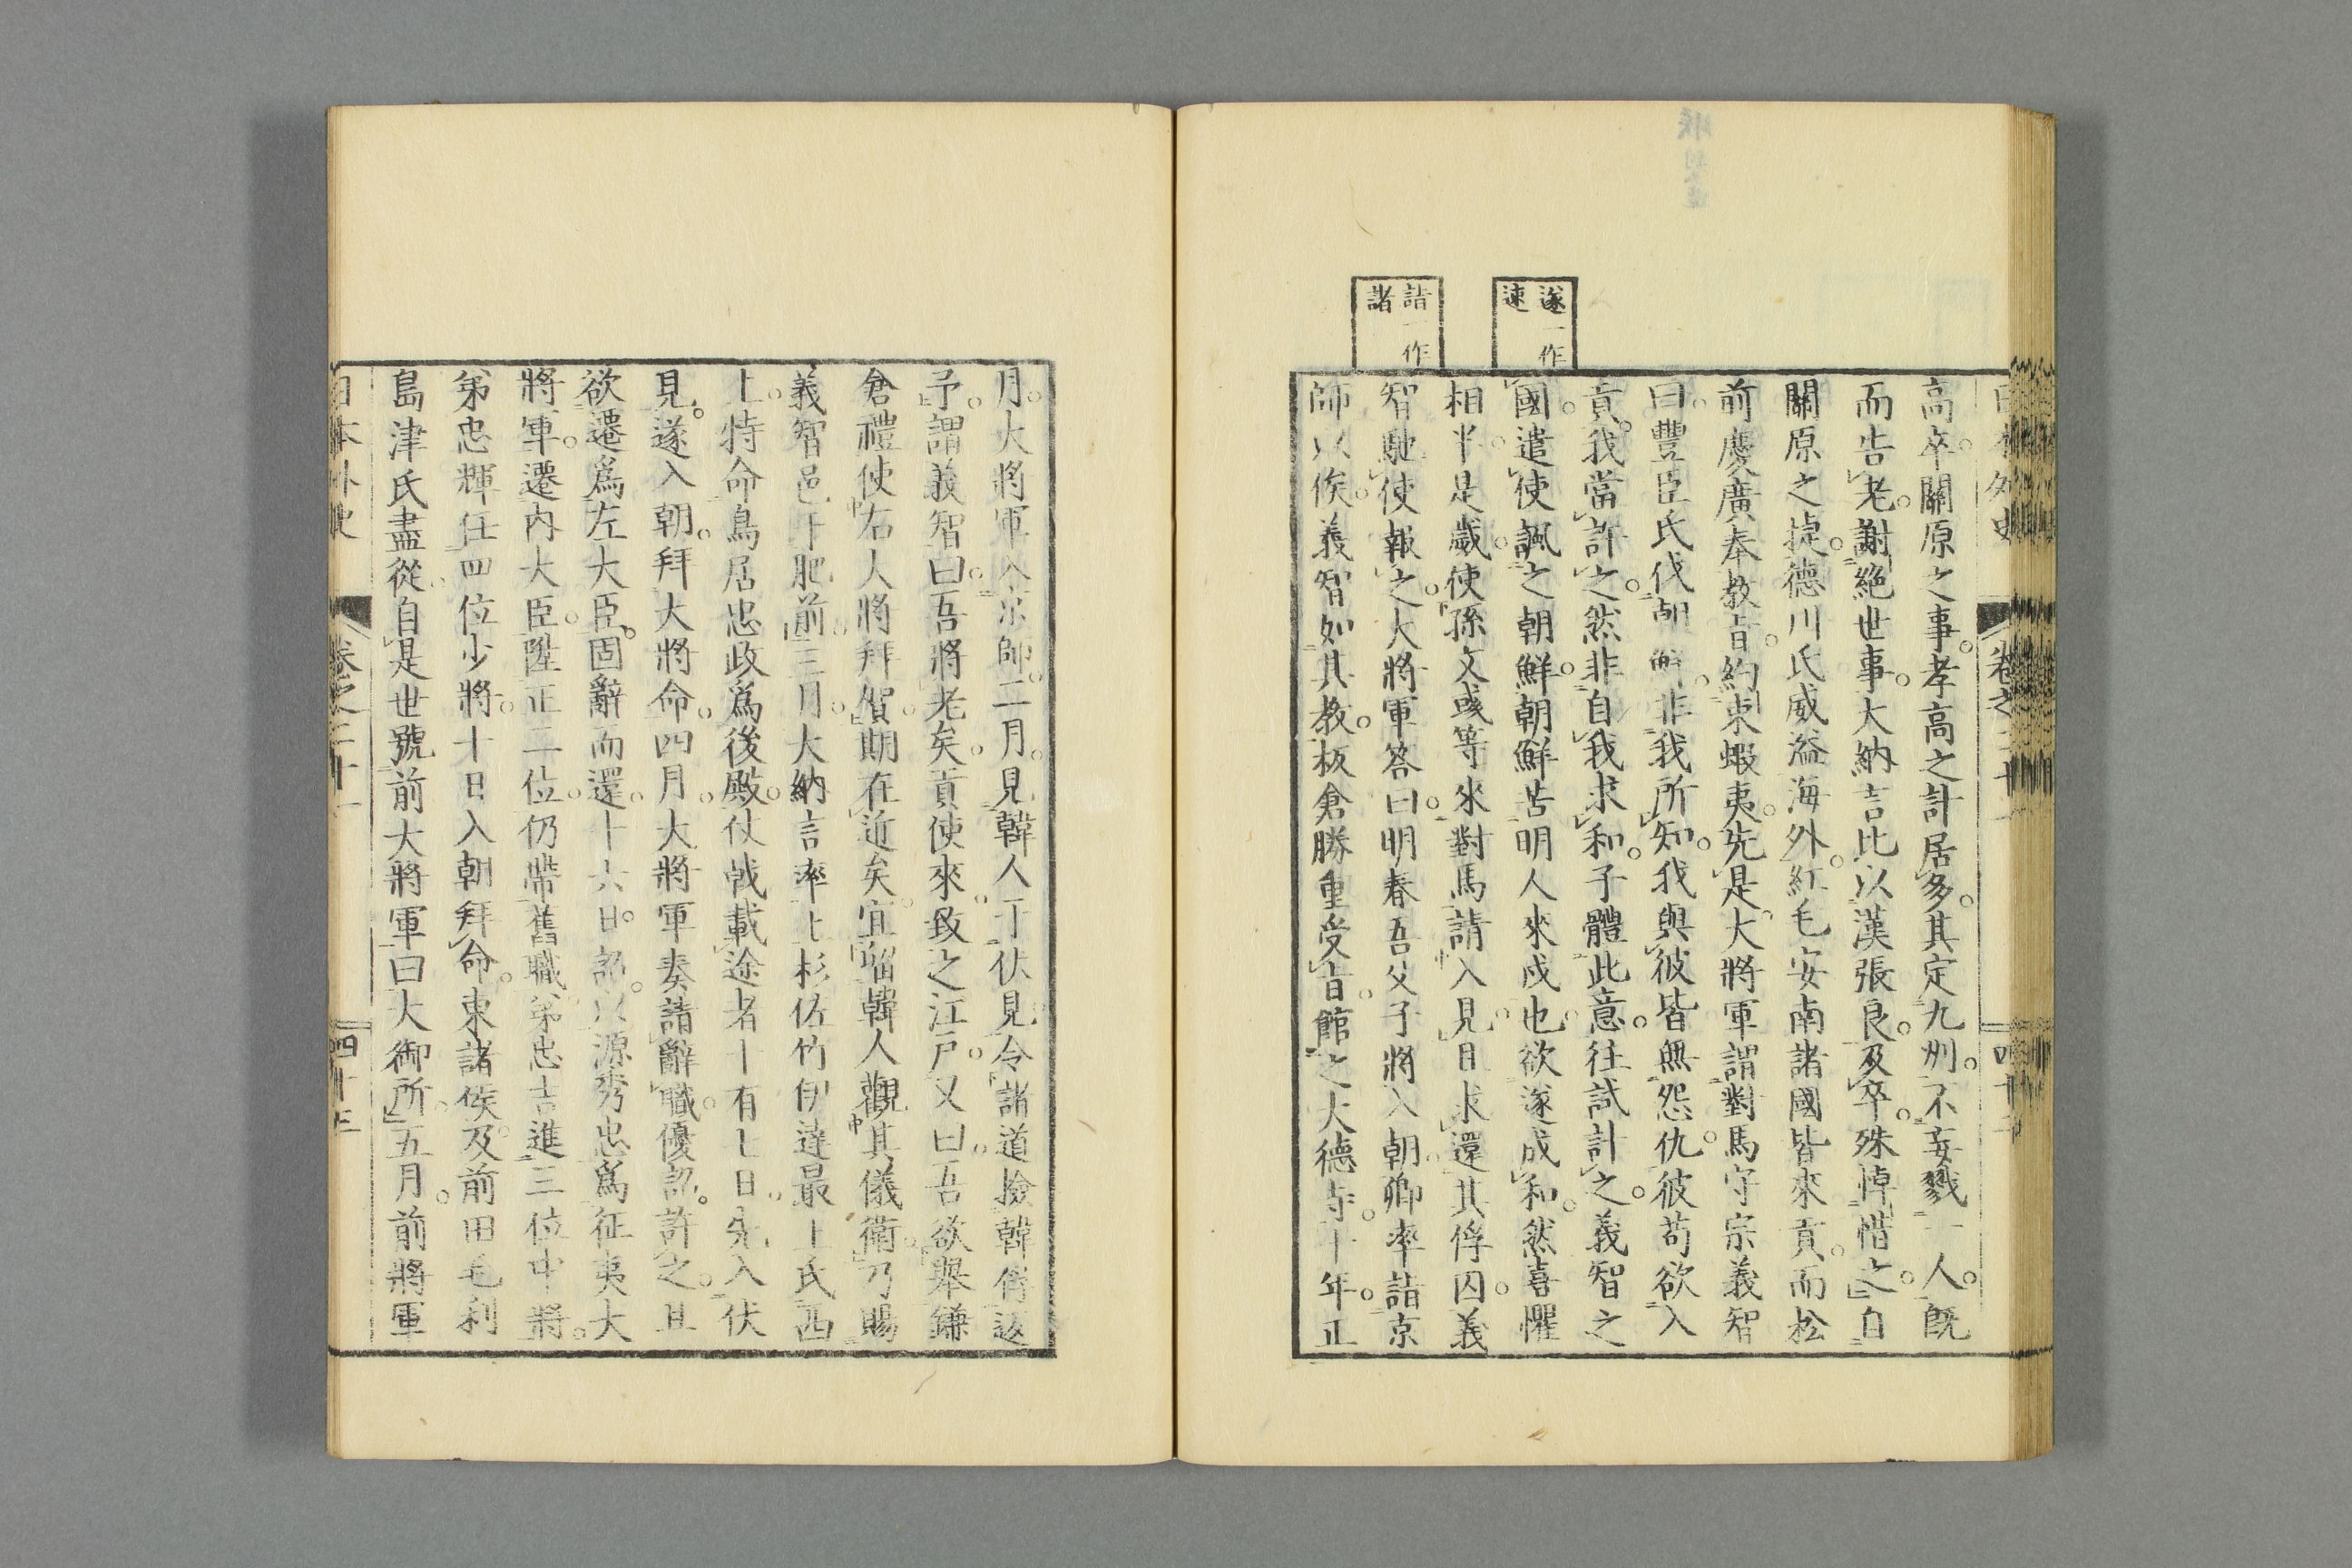 遂一作
速
詣一作
諸
高卒關原之事孝高之計居多其定九州不妄戮一人既
而告老謝絕世事大納言比以漢張良及卒殊悼惜之自
關原之捷德川氏威溢海外紅毛安南諸國皆來貢而松
前慶廣奉教旨約束蝦夷先是大將軍謂對馬守宗義智
曰豐臣氏伐朝鮮非我所知我與彼皆無怨仇彼苟欲入
貢我當許之然非自我求和子體此意往試計之義智之
國遣使諷之朝鮮朝鮮苦明人來戍也欲遂成和然喜懼
相半是歲使孫文彧等來對馬請入見且求還其俘囚義
智馳使報之大將軍答曰明春吾父子將入朝卿率詣京
師以俟義智如其教板倉勝重受旨館之大德寺十年正
月大將軍入京師二月見韓人于伏見令諸道撿韓俘返
予謂義智曰吾將老矣貢使來致之江戶又曰吾欲舉鎌
倉禮使右人將拜賀期在近矣宜留韓人觀其儀衛乃賜
義智邑于肥前三月大納言率上杉佐竹伊達最上氏西
上特命鳥居忠政爲後殿仗戟載途者十有七日先入伏
見遂入朝拜大將命四月大將軍奏請辭職優詔許之且
欲遷爲左大臣固辭而還十六日詔以源秀忠爲征夷大
將軍遷内大臣陞正二位仍帶舊職弟忠吉進三位中將
弟忠輝任四位少將十日入朝拜命東諸侯及前田毛利
島津氏盡從自是世號前大將軍曰大御所五月前將軍
日本外史 卷之二十一 四十三